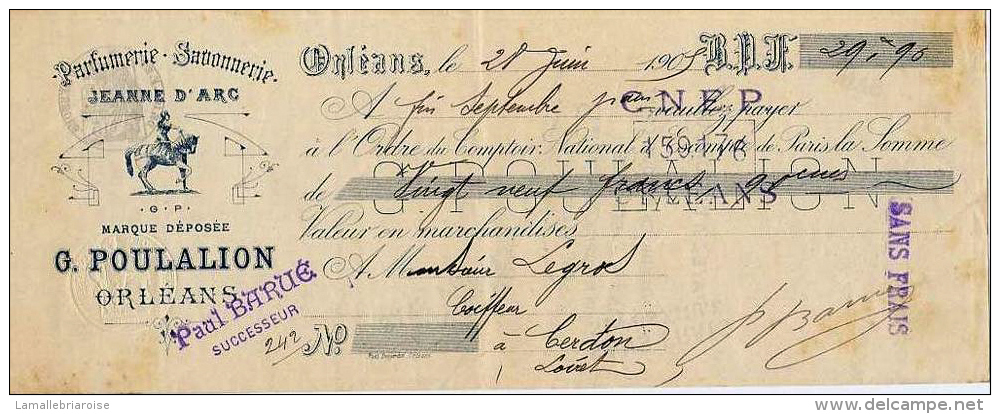 Parfumerie - Savonnerie
JEANNE D'ARC
G. P.
MARQUE DÉPOSÉE
G. POULALION
ORLÉANS
Paul BARUÉ
SUCCESSEUR
Orléans, le 28 Juin 1905 B.P.F. 29,90
A fin Septembre prain veuillez payer
C N E P
à l'Ordre du Comptoir National d'Escompte de Paris la Somme
159176
de Vingt neuf francs 90 cmes
G. POULALION
ORLEANS
Valeur en marchandises
A Monsieur Legros
Coiffeur
à Cerdon
Loiret
242 No
SANS FRAIS
Lamallebriaroise
delcampe.net